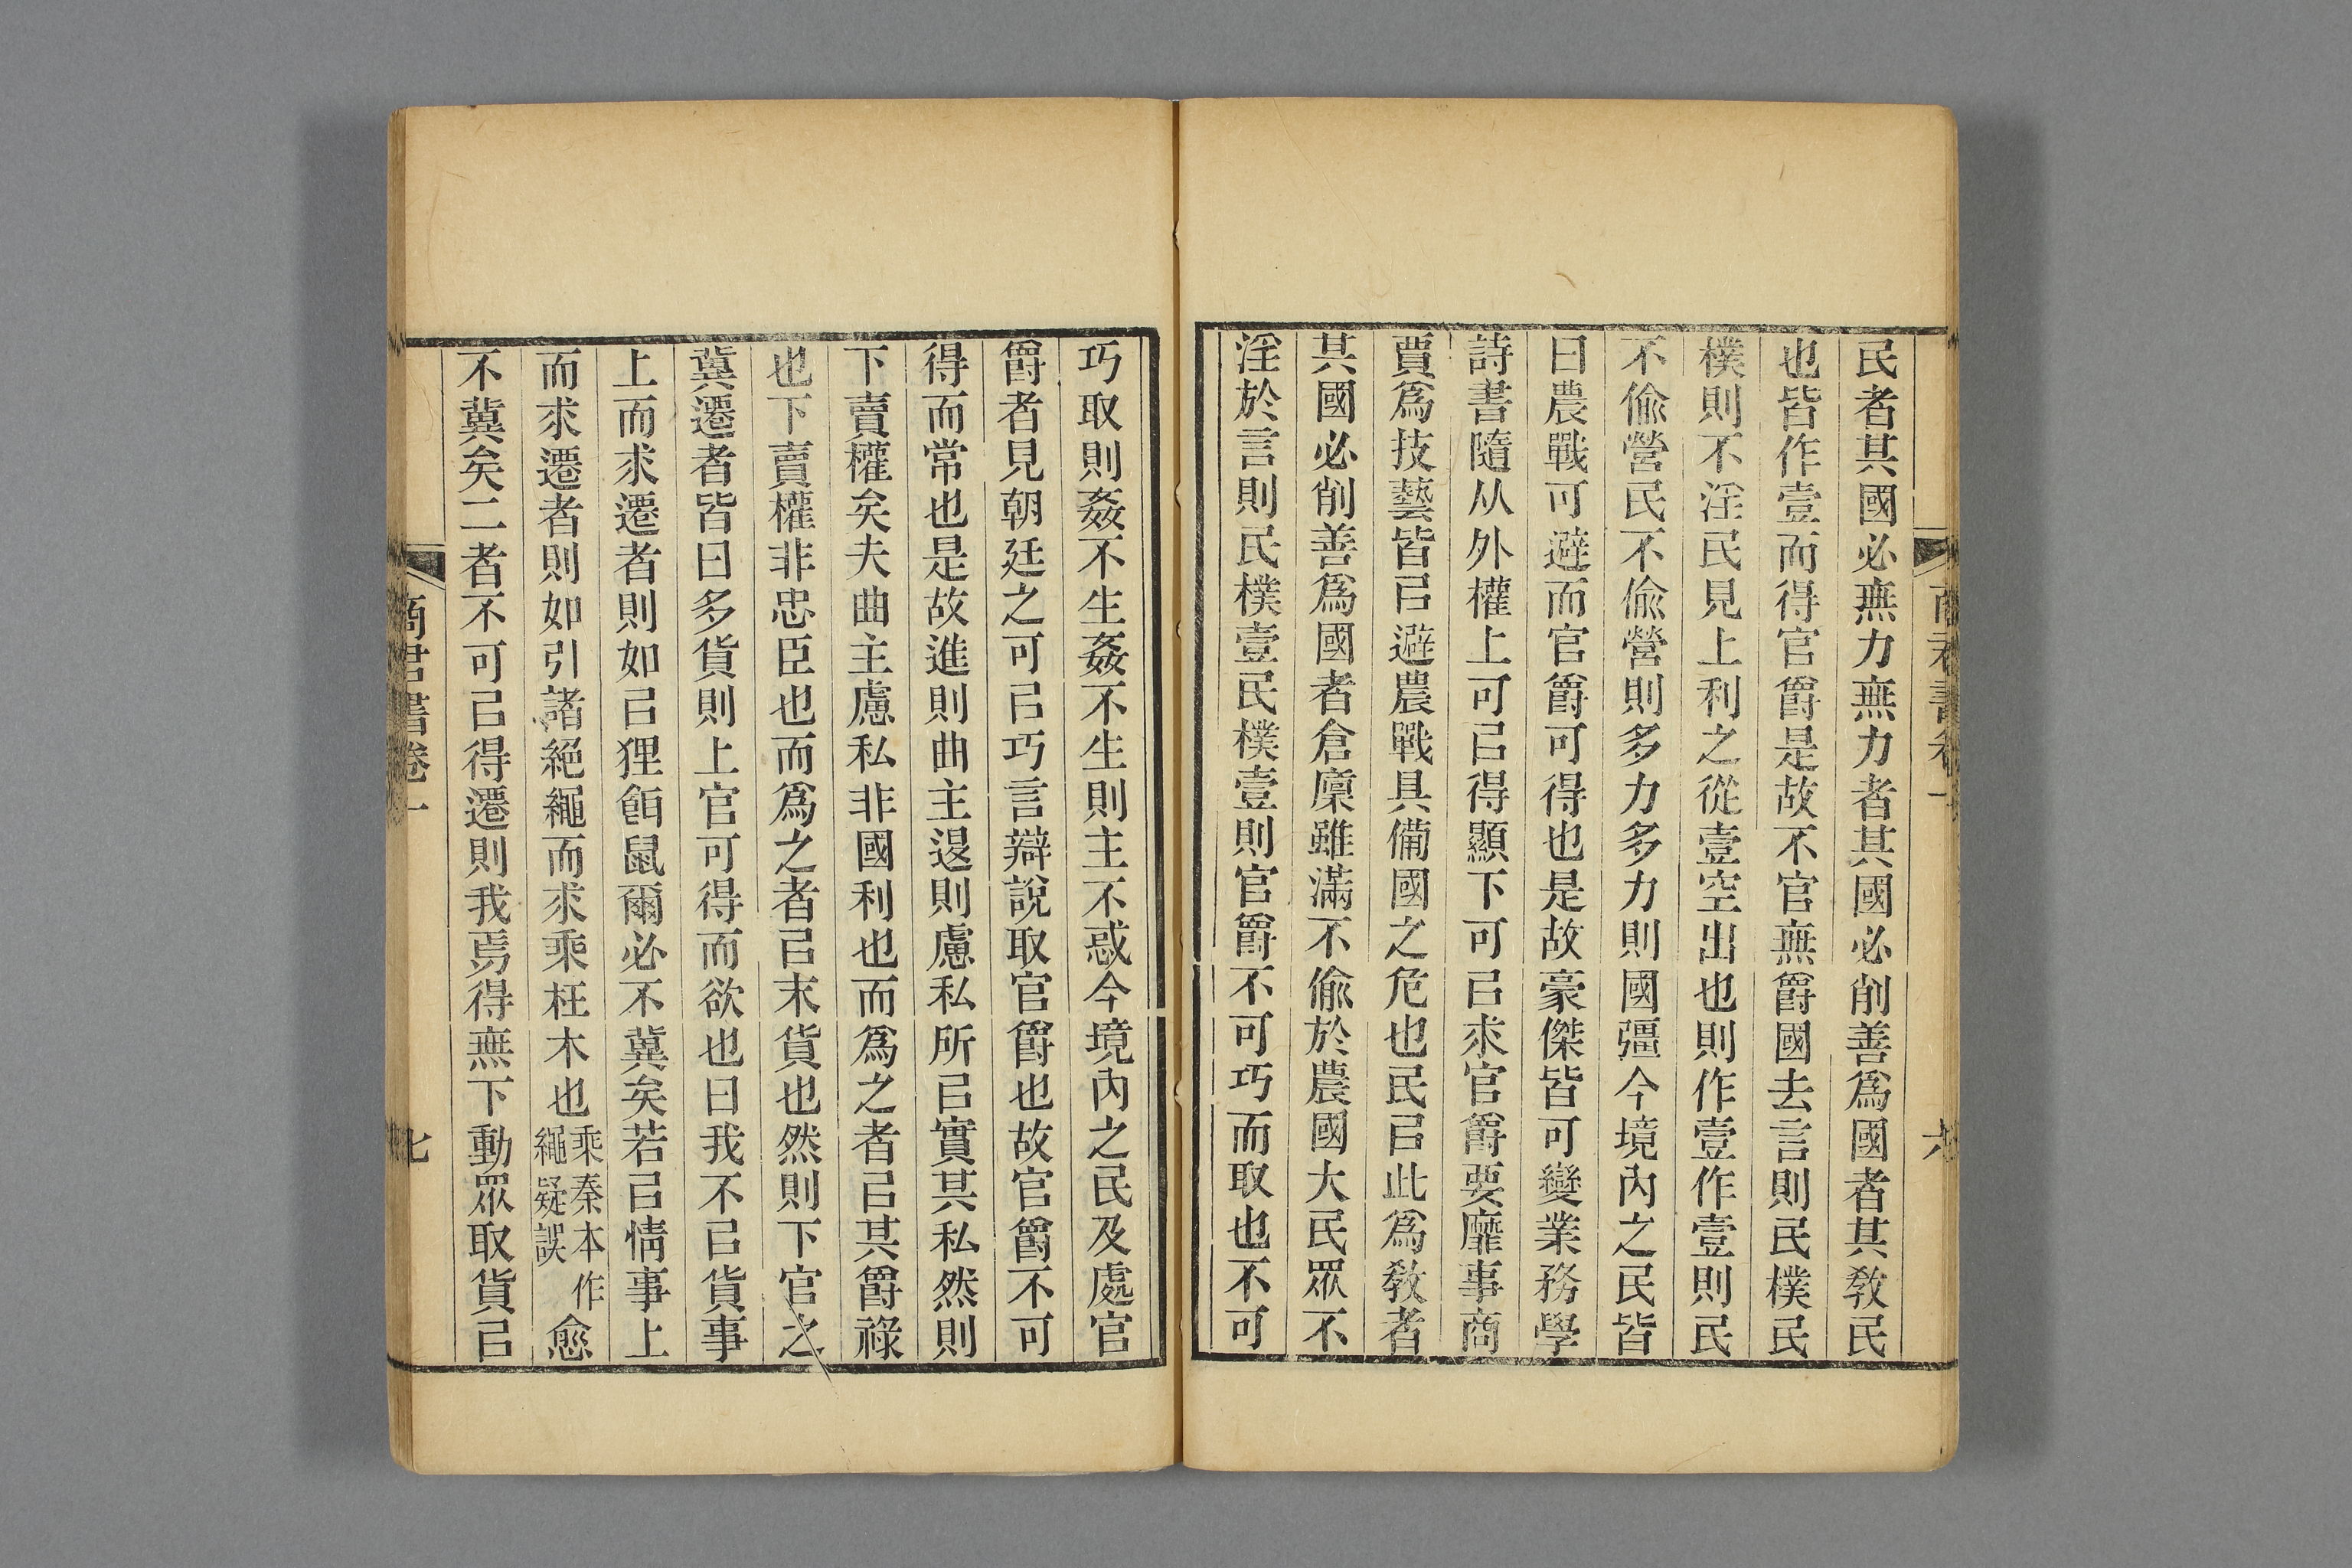 民者其國必無力無力者其國必削善爲國者其敎民
也皆作壹而得官爵是故不官無爵國去言則民樸民
樸則不淫民見上利之從壹空出也則作壹作壹則民
不偸營民不偸營則多力多力則國彊今境內之民皆
曰農戰可避而官爵可得也是故豪傑皆可變業務學
詩書隨从外權上可㠯得顯下可㠯求官爵要靡事商
賈爲技藝皆㠯避農戰具備國之危也民㠯此爲敎者
其國必削善爲國者倉廩雖滿不偸於農國大民眾不
淫於言則民樸壹民樸壹則官爵不可巧而取也不可
巧取則姦不生姦不生則主不惑今境內之民及處官
爵者見朝廷之可㠯巧言辯說取官爵也故官爵不可
得而常也是故進則曲主退則慮私所㠯實其私然則
下賣權矣夫曲主慮私非國利也而爲之者㠯其爵祿
也下賣權非忠臣也而爲之者㠯末貨也然則下官之
冀遷者皆曰多貨則上官可得而欲也曰我不㠯貨事
上而求遷者則如㠯狸餌鼠爾必不冀矣若㠯情事上
而求遷者則如引諸絕繩而求乘枉木也乘秦本作繩疑誤愈
不冀矣二者不可㠯得遷則我焉得無下動眾取貨㠯
商君書卷一
七